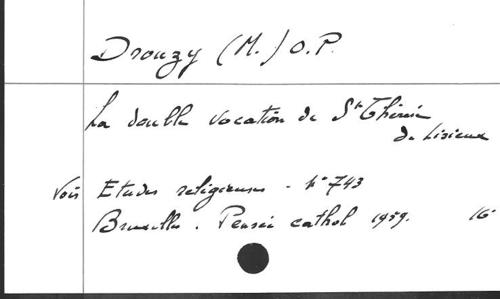 Drouzy (M.) O.P.
La double vocation de Ste Thérèse
de Lisieux
Voir Etudes religieuses - N° 743
Bruxelles. Pensée cathol 1959. 16°